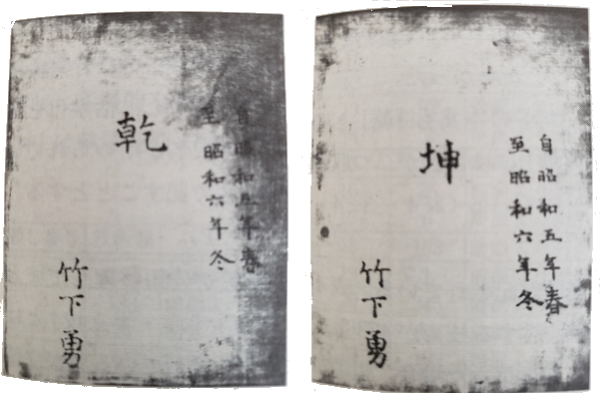 自昭和五年春
至昭和六年冬
乾
竹下勇
自昭和五年春
至昭和六年冬
坤
竹下勇